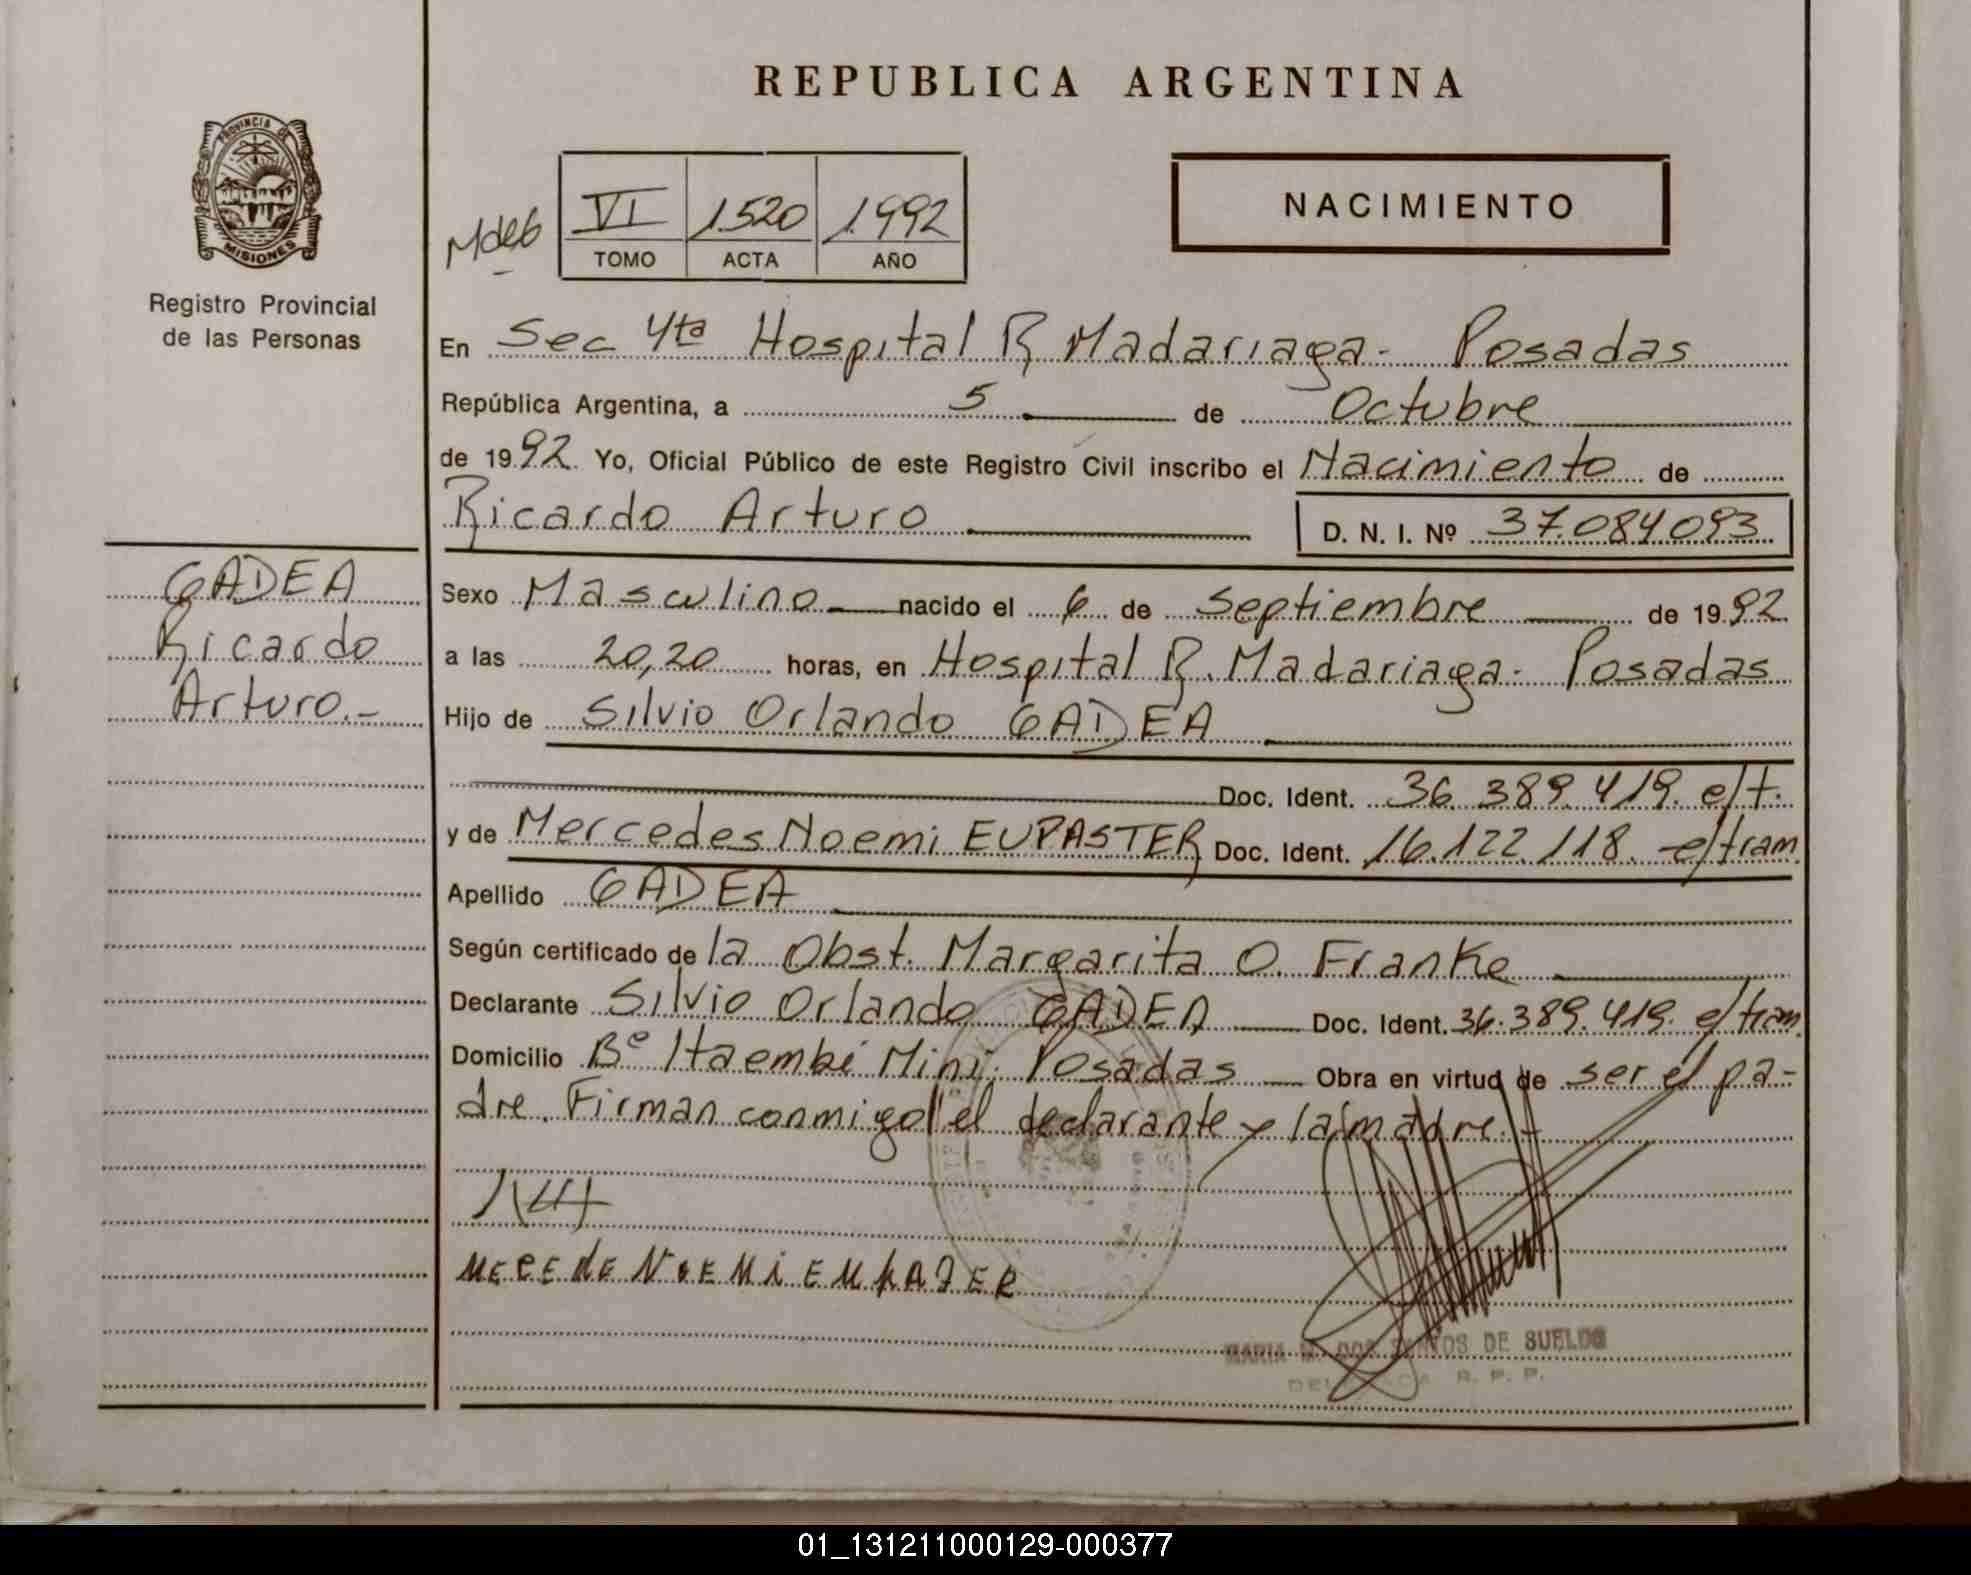 REPUBLICA ARGENTINA
PROVINCIA DE
MISIONES
Registro Provincial
de las Personas
VI 1520 1992
TOMO ACTA AÑO
NACIMIENTO
En Sec 4ta Hospital R Madariaga - Posadas
República Argentina, a 5 de Octubre
de 1992. Yo, Oficial Público de este Registro Civil inscribo el Nacimiento de
Ricardo Arturo D. N. I. Nº 37.084.093
GADEA
Ricardo
Arturo.-
Sexo Masculino nacido el 6 de Septiembre de 1992
a las 20,20 horas, en Hospital R. Madariaga - Posadas
Hijo de Silvio Orlando GADEA
Doc. Ident. 36.389.419. e/t.
y de Mercedes Noemi EUPASTER Doc. Ident. 16.122.118. e/tram.
Apellido GADEA
Según certificado de la Obst. Margarita O. Franke
Declarante Silvio Orlando GADEA Doc. Ident. 36.389.419. e/tram.
Domicilio Bº Itaembé Miní. Posadas Obra en virtud de ser el pa-
dre. Firman conmigo el declarante y la madre.-
MECEDE NOEMI
MARIA M. DOS SANTOS DE SUELDO
R. P. P.
01_131211000129-000377